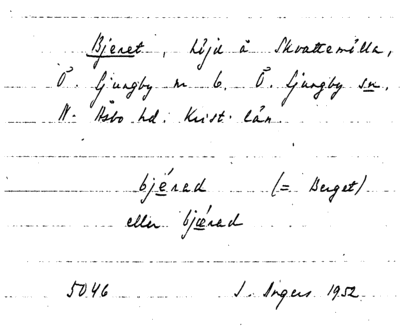 Bjeret, höjd å Skvattemölla,
Ö. Ljungby nr 6. Ö. Ljungby sn.
N. Åsbo hd. Krist. län.
bjérad (= Berget)
eller bjǽrad
5046 I. Ingers 1952